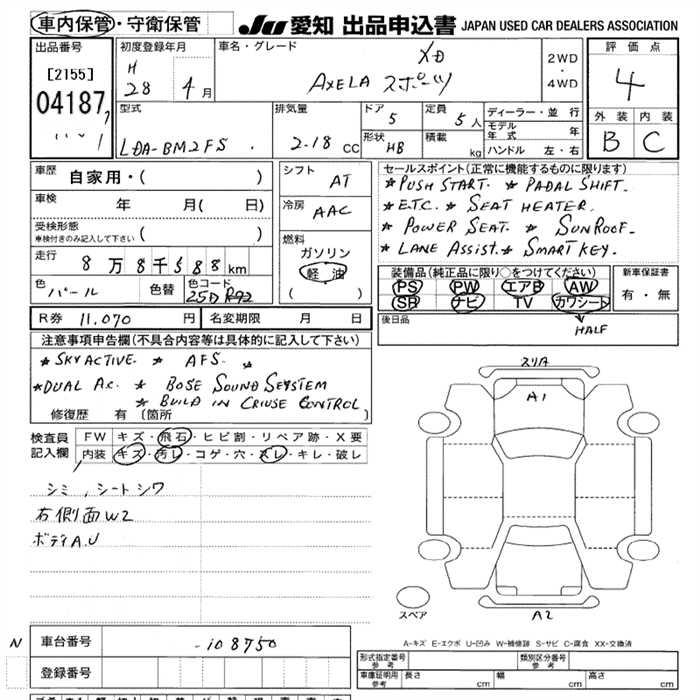 車内保管・守衛保管
JU 愛知 出品申込書 JAPAN USED CAR DEALERS ASSOCIATION
出品番号
[2155]
04187
初度登録年月
H 28 年 4 月
車名・グレード
XD
AXELA スポーツ
2WD
・
4WD
評価点
4
外装 内装
B C
型式
LDA-BM2FS
排気量
2.18 CC
ドア
5
形状
HB
定員
5人
積載
kg
ディーラー・並行
モデル年式 年
ハンドル 左・右
車歴 自家用・( )
車検 年 月( 日)
受検形態
車検付きのみ記入して下さい ( )
走行 8万8千588km
色 パール 色替 色コード 25D
シフト
AT
冷房
AAC
燃料
ガソリン
軽油
( )
セールスポイント(正常に機能するものに限ります)
★PUSH START. ★ PADAL SHIFT.
★E.T.C. ★ SEAT HEATER.
★ POWER SEAT. ★ SUNROOF.
★ LANE ASSIST. ★ SMART KEY.
装備品(純正品に限り○をつけてください)
PS PW エアB AW
SR ナビ TV カワシート
HALF
新車保証書
有・無
後日品
R券 11,070 円 名変期限 月 日
注意事項申告欄(不具合内容等は具体的に記入して下さい)
★ SKYACTIVE. ★ AFS.
★DUAL A.C. ★ BOSE SOUND SEYSTEM
★ BUILD IN CRIUSE CONTROL
修復歴 有 〔箇所
検査員記入欄
FW キズ・飛石・ヒビ割・リペア跡・X要
内装 キズ・汚レ・コゲ・穴・スレ・キレ・破レ
シミ、シートシワ
右側面W2
ボディA.U
スリA
A1
A2
スペア
A-キズ E-エクボ U-凹み W-補修跡 S-サビ C-腐食 XX-交換済
N 車台番号 -108750
登録番号
形式指定番号 参考
類別区分番号 参考
車庫証明用 参考 長さ cm 幅 cm 高さ cm